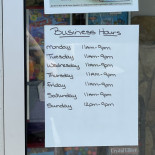 Business Hours
Monday 11am-9pm
Tuesday 11am-9pm
Wednesday 11am-9pm
Thursday 11am-9pm
Friday 11am-9pm
Saturday 11am-9pm
Sunday 12pm-9pm